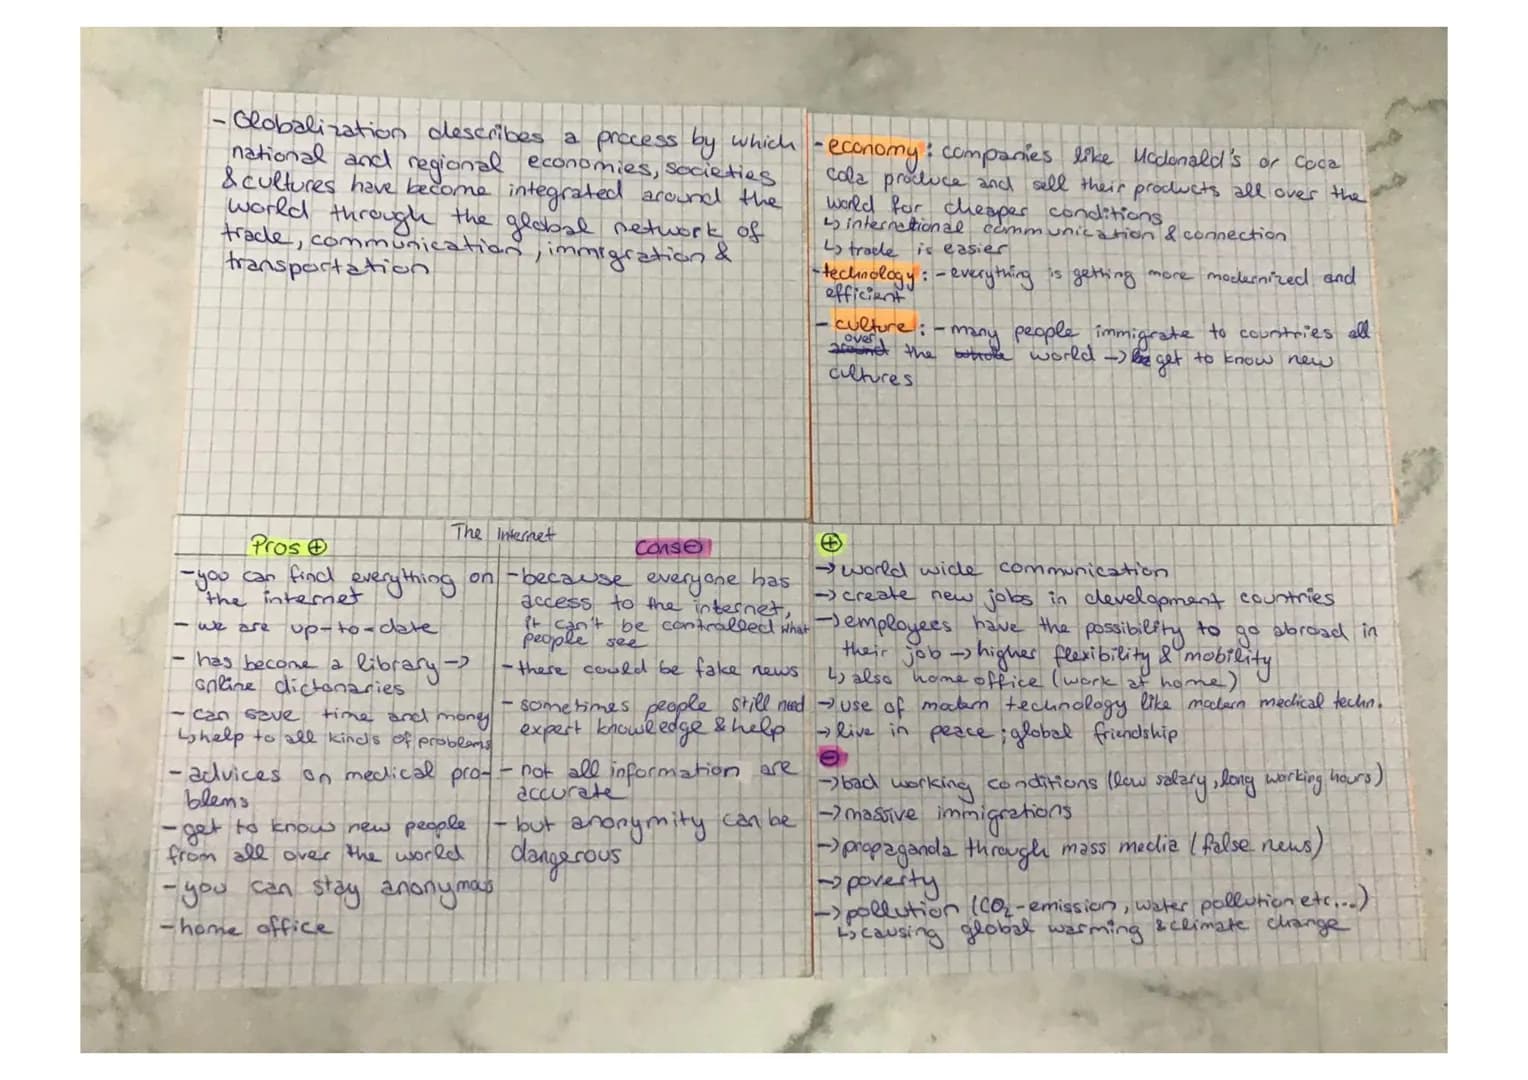 - Globalization describes a process by which
national and regional economies, societies
& cultures have become integrated around the
world through the global network of
trade, communication, immigration &
transportation
- economy: companies like Mcdonald's or Coca
Cola produce and sell their products all over the
world for cheaper conditions
↳ international communication & connection
↳ trade is easier
- technology: - everything is getting more modernized and
efficient
- culture: - many people immigrate to countries all
over
around the whole world → get to know new
cultures
The Internet
Pros ⊕
- you can find everything on
the internet
- we are up-to-date
- has become a library →
online dictonaries
- can save time and money
↳ help to all kinds of problems
- advices on medical pro-
blems
- get to know new people
from all over the world
- you can stay anonymous
- home office
Cons ⊖
- because everyone has
access to the internet,
it can't be controlled what
people see
- there could be fake news
- sometimes people still need
expert knowledge & help
- not all information are
accurate
- but anonymity can be
dangerous
⊕
→ world wide communication
→ create new jobs in development countries
→ employees have the possibility to go abroad in
their job → higher flexibility & mobility
↳ also home office (work at home)
→ use of modern technology like modern medical techn.
→ live in peace; global friendship
⊖
→ bad working conditions (low salary, long working hours)
→ massive immigrations
→ propaganda through mass media (false news)
→ poverty
→ pollution (CO₂-emission, water pollution etc...)
↳ causing global warming & climate change